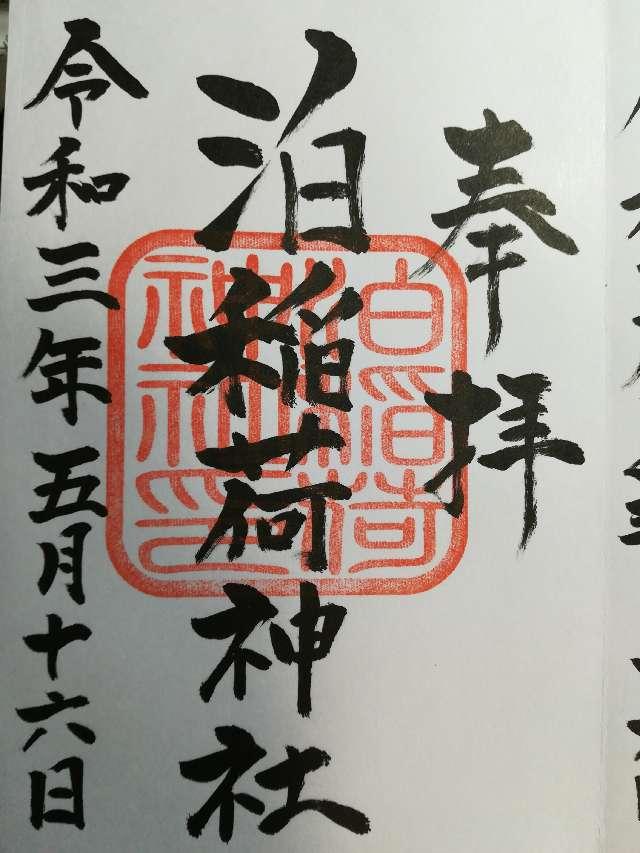 奉拝
泊稲荷神社
泊稲荷
神社印
令和三年五月十六日